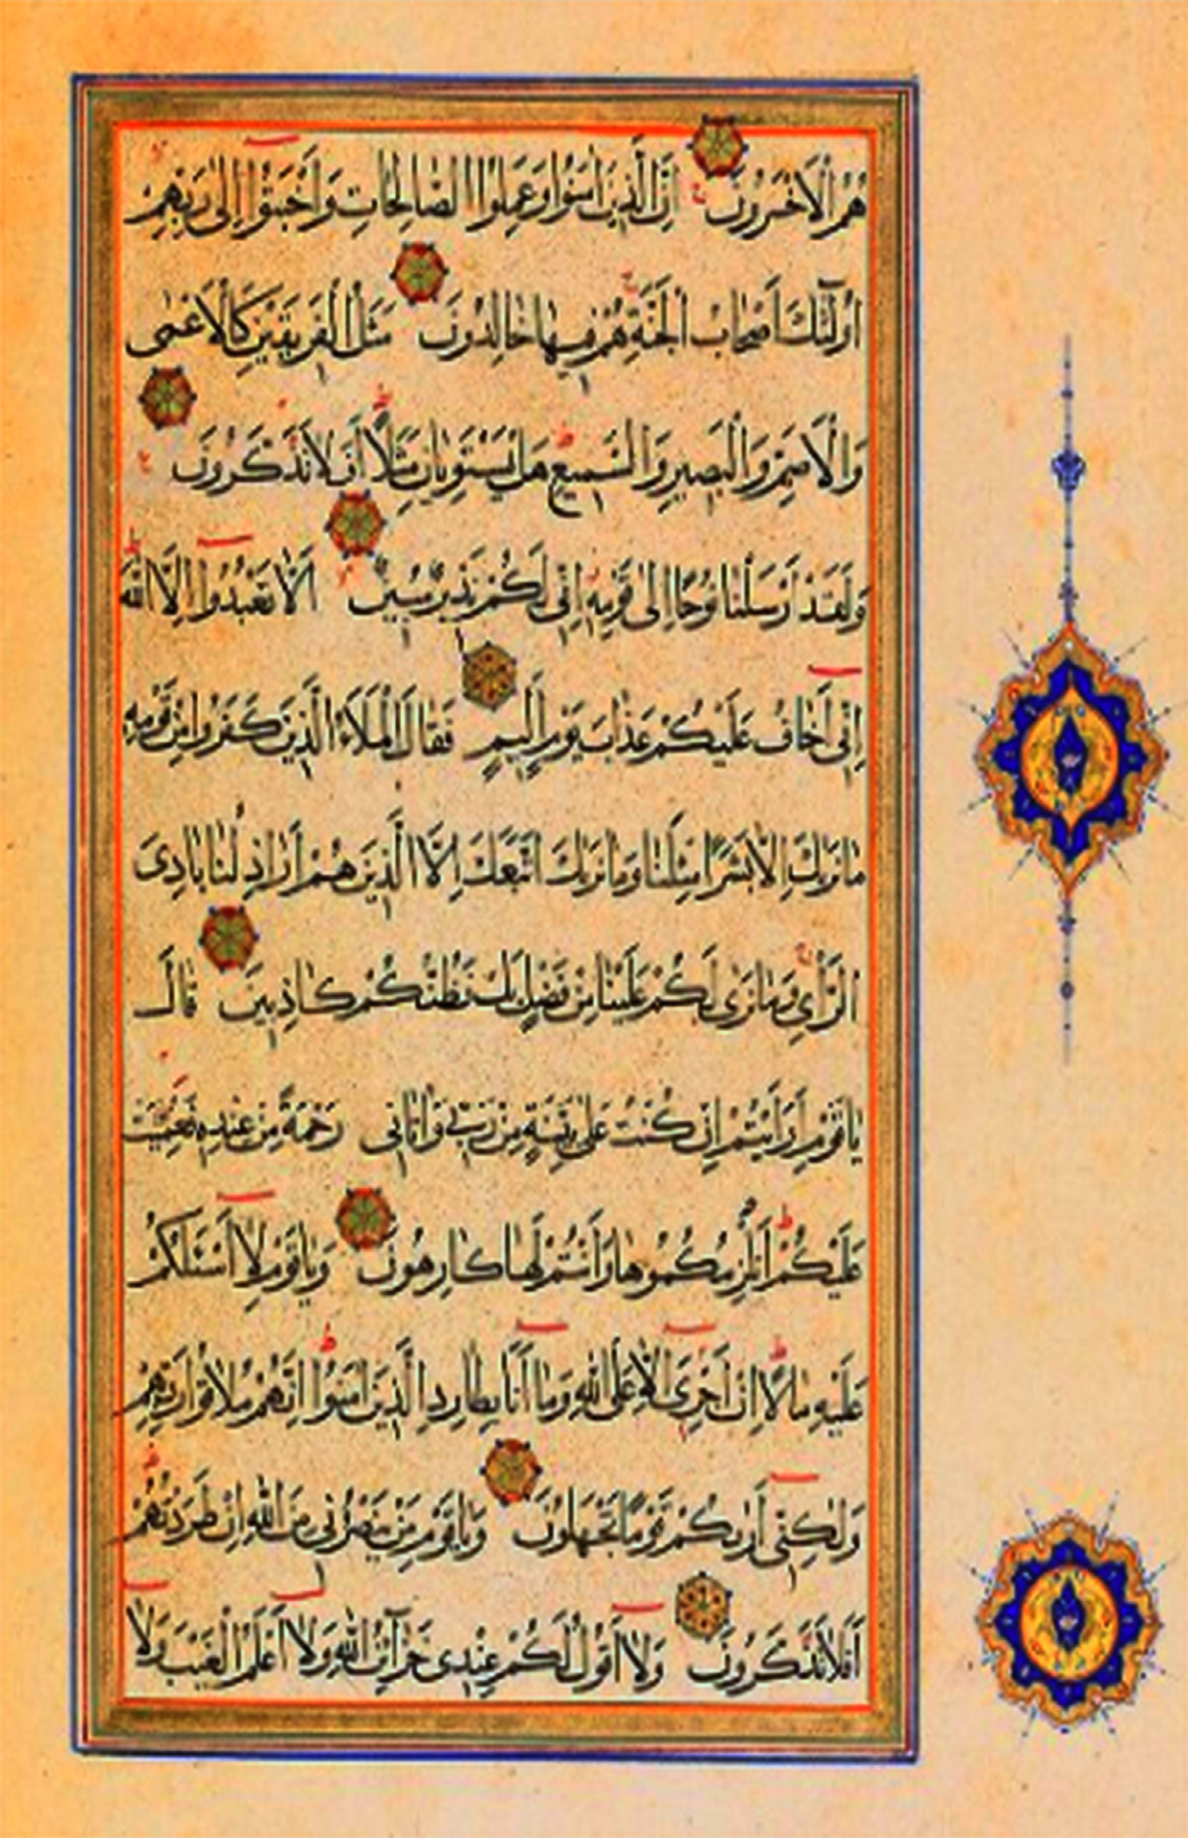 هُمُ الْاَخْسَرُونَ اِنَّ الَّذِينَ اٰمَنُوا وَعَمِلُوا الصَّالِحَاتِ وَاَخْبَتُوا اِلٰى رَبِّهِمْ
اُولٰئِكَ اَصْحَابُ الْجَنَّةِ هُمْ فِيهَا خَالِدُونَ مَثَلُ الْفَرِيقَيْنِ كَالْاَعْمٰى
وَالْاَصَمِّ وَالْبَصِيرِ وَالسَّمِيعِ هَلْ يَسْتَوِيَانِ مَثَلًا اَفَلَا تَذَكَّرُونَ
وَلَقَدْ اَرْسَلْنَا نُوحًا اِلٰى قَوْمِهِ اِنِّى لَكُمْ نَذِيرٌ مُبِينٌ اَلَّا تَعْبُدُوا اِلَّا اللّٰهَ
اِنِّى اَخَافُ عَلَيْكُمْ عَذَابَ يَوْمٍ اَلِيمٍ فَقَالَ الْمَلَاُ الَّذِينَ كَفَرُوا مِنْ قَوْمِهِ
مَا نَرٰيكَ اِلَّا بَشَرًا مِثْلَنَا وَمَا نَرٰيكَ اتَّبَعَكَ اِلَّا الَّذِينَ هُمْ اَرَاذِلُنَا بَادِىَ
الرَّاْىِ وَمَا نَرٰى لَكُمْ عَلَيْنَا مِنْ فَضْلٍ بَلْ نَظُنُّكُمْ كَاذِبِينَ قَالَ
يَا قَوْمِ اَرَاَيْتُمْ اِنْ كُنْتُ عَلٰى بَيِّنَةٍ مِنْ رَبِّى وَاٰتَانِى رَحْمَةً مِنْ عِنْدِهِ فَعُمِّيَتْ
عَلَيْكُمْ اَنُلْزِمُكُمُوهَا وَاَنْتُمْ لَهَا كَارِهُونَ وَيَا قَوْمِ لَا اَسْئَلُكُمْ
عَلَيْهِ مَالًا اِنْ اَجْرِىَ اِلَّا عَلَى اللّٰهِ وَمَا اَنَا بِطَارِدِ الَّذِينَ اٰمَنُوا اِنَّهُمْ مُلَاقُوا رَبِّهِمْ
وَلٰكِنِّى اَرٰيكُمْ قَوْمًا تَجْهَلُونَ وَيَا قَوْمِ مَنْ يَنْصُرُنِى مِنَ اللّٰهِ اِنْ طَرَدْتُهُمْ
اَفَلَا تَذَكَّرُونَ وَلَا اَقُولُ لَكُمْ عِنْدِى خَزَآئِنُ اللّٰهِ وَلَا اَعْلَمُ الْغَيْبَ وَلَا